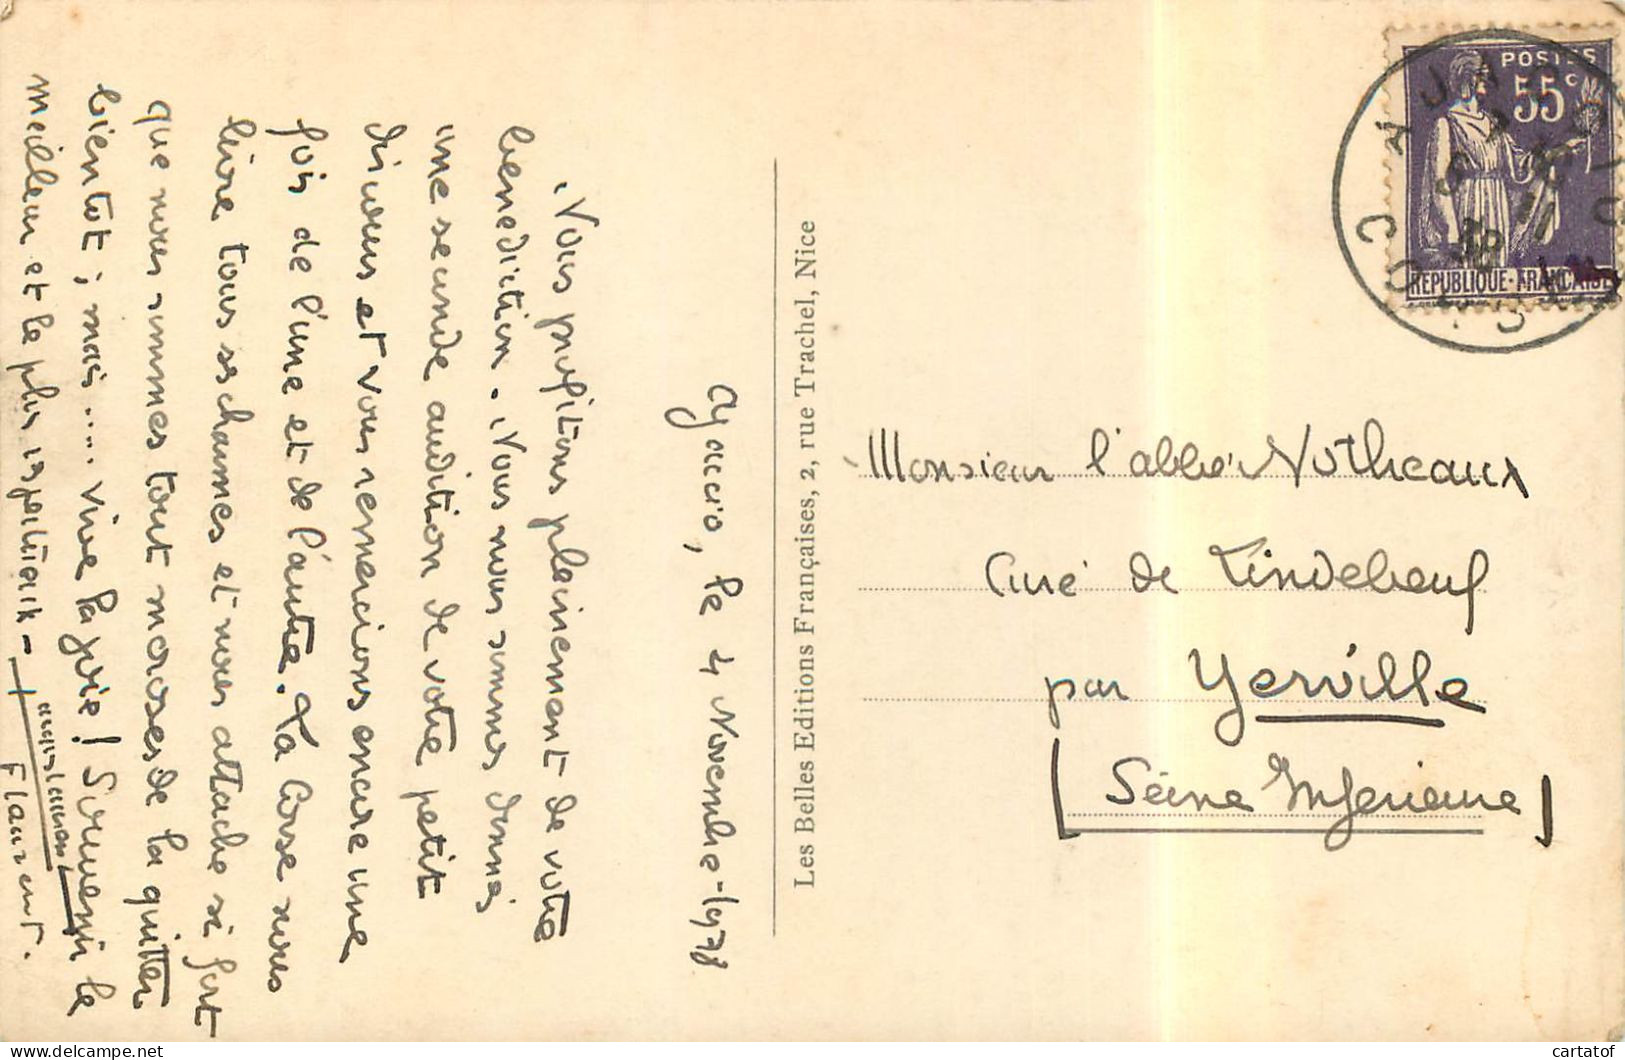 Ajaccio, le 4 Novembre-1938
Nous profitons pleinement de votre
benediction. Nous nous sommes donnés
une seconde audition de votre petit
discours et vous remercions encore une
fois de l'une et de l'autre. La Corse nous
livre tous ses charmes et nous attache si fort
que nous sommes tout moroses de la quitter
bientot ; mais ..... vive la joie ! Souvenir le
meilleur et le plus
Flaurent.
Les Belles Editions Françaises, 2, rue Trachel, Nice
POSTES
55c
REPUBLIQUE-FRANCAISE
AJACCIO
CORSE
Monsieur l'abbé Notheaux
Curé de Lindebeuf
par Yerville
[Séine Inferieure]
cartatof